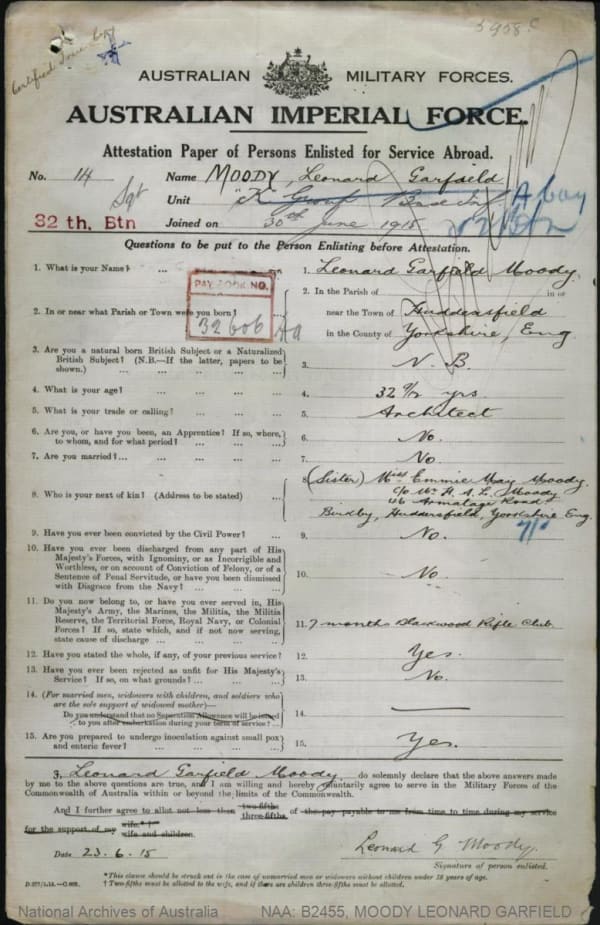 5908 C
Certified True Copy
AUSTRALIAN MILITARY FORCES.
AUSTRALIAN IMPERIAL FORCE.
Attestation Paper of Persons Enlisted for Service Abroad.
No. 14 Name MOODY, Leonard Garfield
Sgt Unit "K" Group Base Inf A Coy
32 Btn
32 th. Btn Joined on 30th June 1915
Questions to be put to the Person Enlisting before Attestation.
1. What is your Name? ... ... ... 1. Leonard Garfield Moody.
PAY BOOK NO.
32606
2. In or near what Parish or Town were you born? 2. In the Parish of in or
near the Town of Huddersfield
in the County of Yorkshire, Eng
3. Are you a natural born British Subject or a Naturalized
British Subject? (N.B.—If the latter, papers to be
shown.) ... ... ... 3. N. B.
4. What is your age? ... ... ... 4. 32 9/12 yrs.
5. What is your trade or calling? ... ... 5. Architect
6. Are you, or have you been, an Apprentice? If so, where,
to whom, and for what period? ... ... ... 6. No.
7. Are you married? ... ... ... ... 7. No
8. Who is your next of kin? (Address to be stated) ... 8. (Sister) Miss Emmie May Moody.
c/o Mr H. A. L. Moody
46 Armatage Road
Birkby, Huddersfield, Yorkshire Eng.
9. Have you ever been convicted by the Civil Power? ... 9. No.
10. Have you ever been discharged from any part of His
Majesty's Forces, with Ignominy, or as Incorrigible and
Worthless, or on account of Conviction of Felony, or of a
Sentence of Penal Servitude, or have you been dismissed
with Disgrace from the Navy? ... ... ... 10. No.
11. Do you now belong to, or have you ever served in, His
Majesty's Army, the Marines, the Militia, the Militia
Reserve, the Territorial Force, Royal Navy, or Colonial
Forces? If so, state which, and if not now serving,
state cause of discharge ... ... ... 11. 7 months Blackwood Rifle Club
12. Have you stated the whole, if any, of your previous service? 12. Yes.
13. Have you ever been rejected as unfit for His Majesty's
Service? If so, on what grounds? ... ... 13. No.
14. (For married men, widowers with children, and soldiers who
are the sole support of widowed mother)—
Do you understand that no Separation Allowance will be issued
to you after embarkation during your term of service? ... 14. —
15. Are you prepared to undergo inoculation against small pox
and enteric fever? ... ... ... ... 15. Yes.
I, Leonard Garfield Moody, do solemnly declare that the above answers made
by me to the above questions are true, and I am willing and hereby voluntarily agree to serve in the Military Forces of the
Commonwealth of Australia within or beyond the limits of the Commonwealth.
And I further agree to allot not less than two-fifths three-fifths of the pay payable to me from time to time during my service
for the support of my wife.*† wife and children.
Date 23.6.15 Leonard G Moody.
Signature of person enlisted.
*This clause should be struck out in the case of unmarried men or widowers without children under 18 years of age.
† Two-fifths must be allotted to the wife, and if there are children three-fifths must be allotted.
National Archives of Australia NAA: B2455, MOODY LEONARD GARFIELD